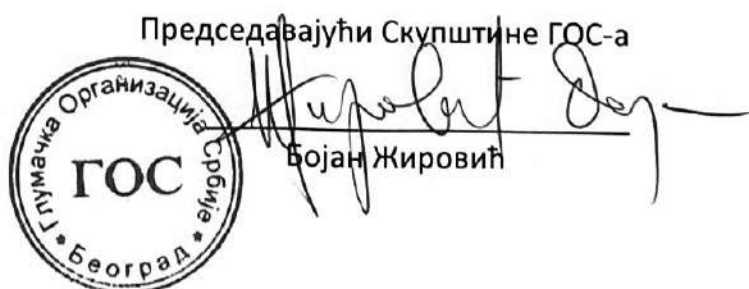 Председавајући Скупштине ГОС-а
Бојан Жировић
Глумачка Организација Србије
ГОС
* Београд *